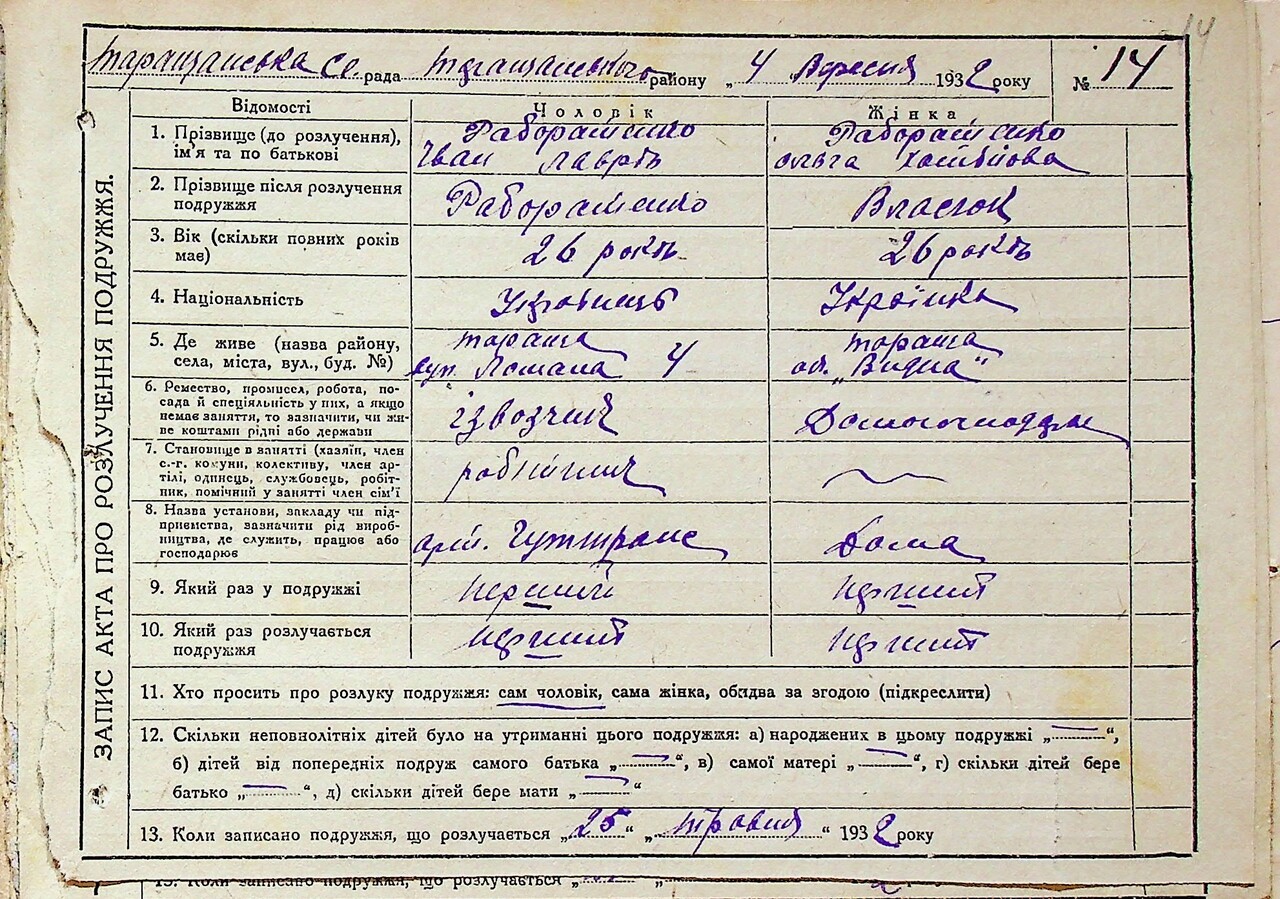 14
Таращанська се. рада Таращанського району „ 4 Вересня 1932 року № 14
ЗАПИС АКТА ПРО РОЗЛУЧЕННЯ ПОДРУЖЖЯ.
Відомості Чоловік Жінка
1. Прізвище (до розлучення), ім'я та по батькові
Іван
Ольга
2. Прізвище після розлучення подружжя
Власюк
3. Вік (скільки повних років має) 26 років 26 років
4. Національність Українець Українка
5. Де живе (назва району, села, міста, вул., буд. №)
Тараща
4
Тараща
6. Ремество, промисел, робота, по-
сада й спеціяльність у них, а якщо
немає заняття, то зазначити, чи жи-
ве коштами рідні або держави
ізвозчик
7. Становище в занятті (хазяїн, член
с.-г. комуни, колективу, член ар-
тілі, одинець, службовець, робіт-
ник, помічний у занятті член сім'ї
робітник
8. Назва установи, закладу чи під-
приємства, зазначити рід вироб-
ництва, де служить, працює або
господарює
арт. Гужтранс Дома
9. Який раз у подружжі перший перший
10. Який раз розлучається
подружжя
перший перший
11. Хто просить про розлуку подружжя: сам чоловік, сама жінка, обидва за згодою (підкреслити)
12. Скільки неповнолітніх дітей було на утриманні цього подружжя: а) народжених в цьому подружжі „ — “,
б) дітей від попередніх подруж самого батька „ — “, в) самої матері „ — “, г) скільки дітей бере
батько „ — “, д) скільки дітей бере мати „ — “
13. Коли записано подружжя, що розлучається „ 25 “ „ травня “ 1932 року
13. Коли записано подружжя, що розлучається